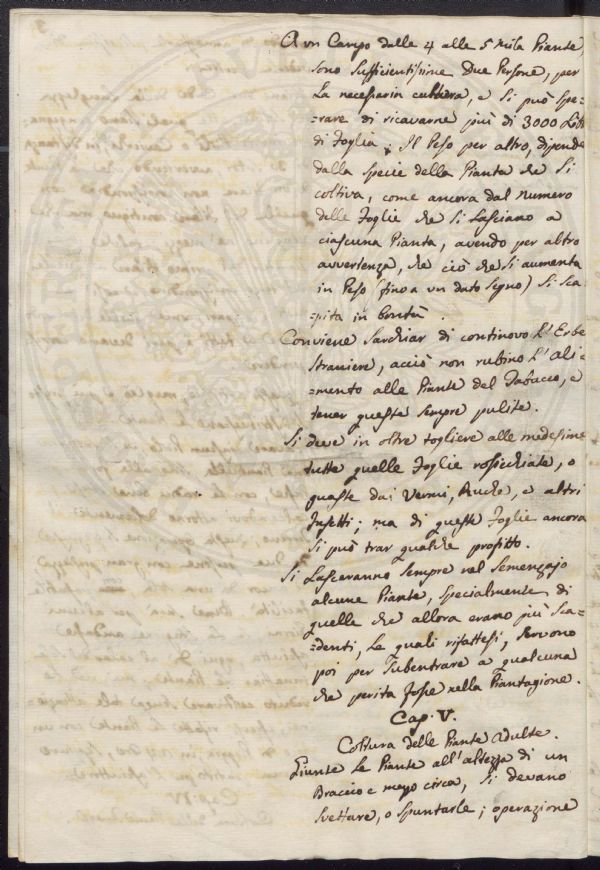 A un Campo dalle 4 alle 5 Mila Piante,
sono sufficientissime Due Persone, per
La necessaria cultura, e si può spe=
=rare di ricavarne più di 3000 Lib
di Foglia. Il Peso per altro, dipende
dalla specie della Pianta che si
coltiva, come ancora dal numero
delle Foglie che si Lasciano a
ciascuna Pianta, avendo per altro
avvertenza, che ciò che si aumenta
in Peso (fino a un dato segno) si sca=
=pita in bontà.
Conviene Sarchiar di continovo L'Erbe
straniere, acciò non rubino L'ali=
=mento alle Piante del Tabacco, e
tener queste sempre pulite.
Si deve in oltre togliere alle medesime
tutte quelle Foglie rosicchiate, o
guaste dai Vermi, Ruche, e altri
Insetti; ma di queste Foglie ancora
si può trar qualche profitto.
Si Lasceranno sempre nel Semenzajo
alcune Piante, specialmente di
quelle che allora erano più sca=
=denti, Le quali rifattesi, servono
poi per Subentrare a qualcuna
che perita fosse nella Piantagione.
Cap. V.
Coltura delle Piante adulte.
Giunte Le Piante all'altezza di un
Braccio e mezzo circa, si devano
Svettare, o Spuntarle; operazione